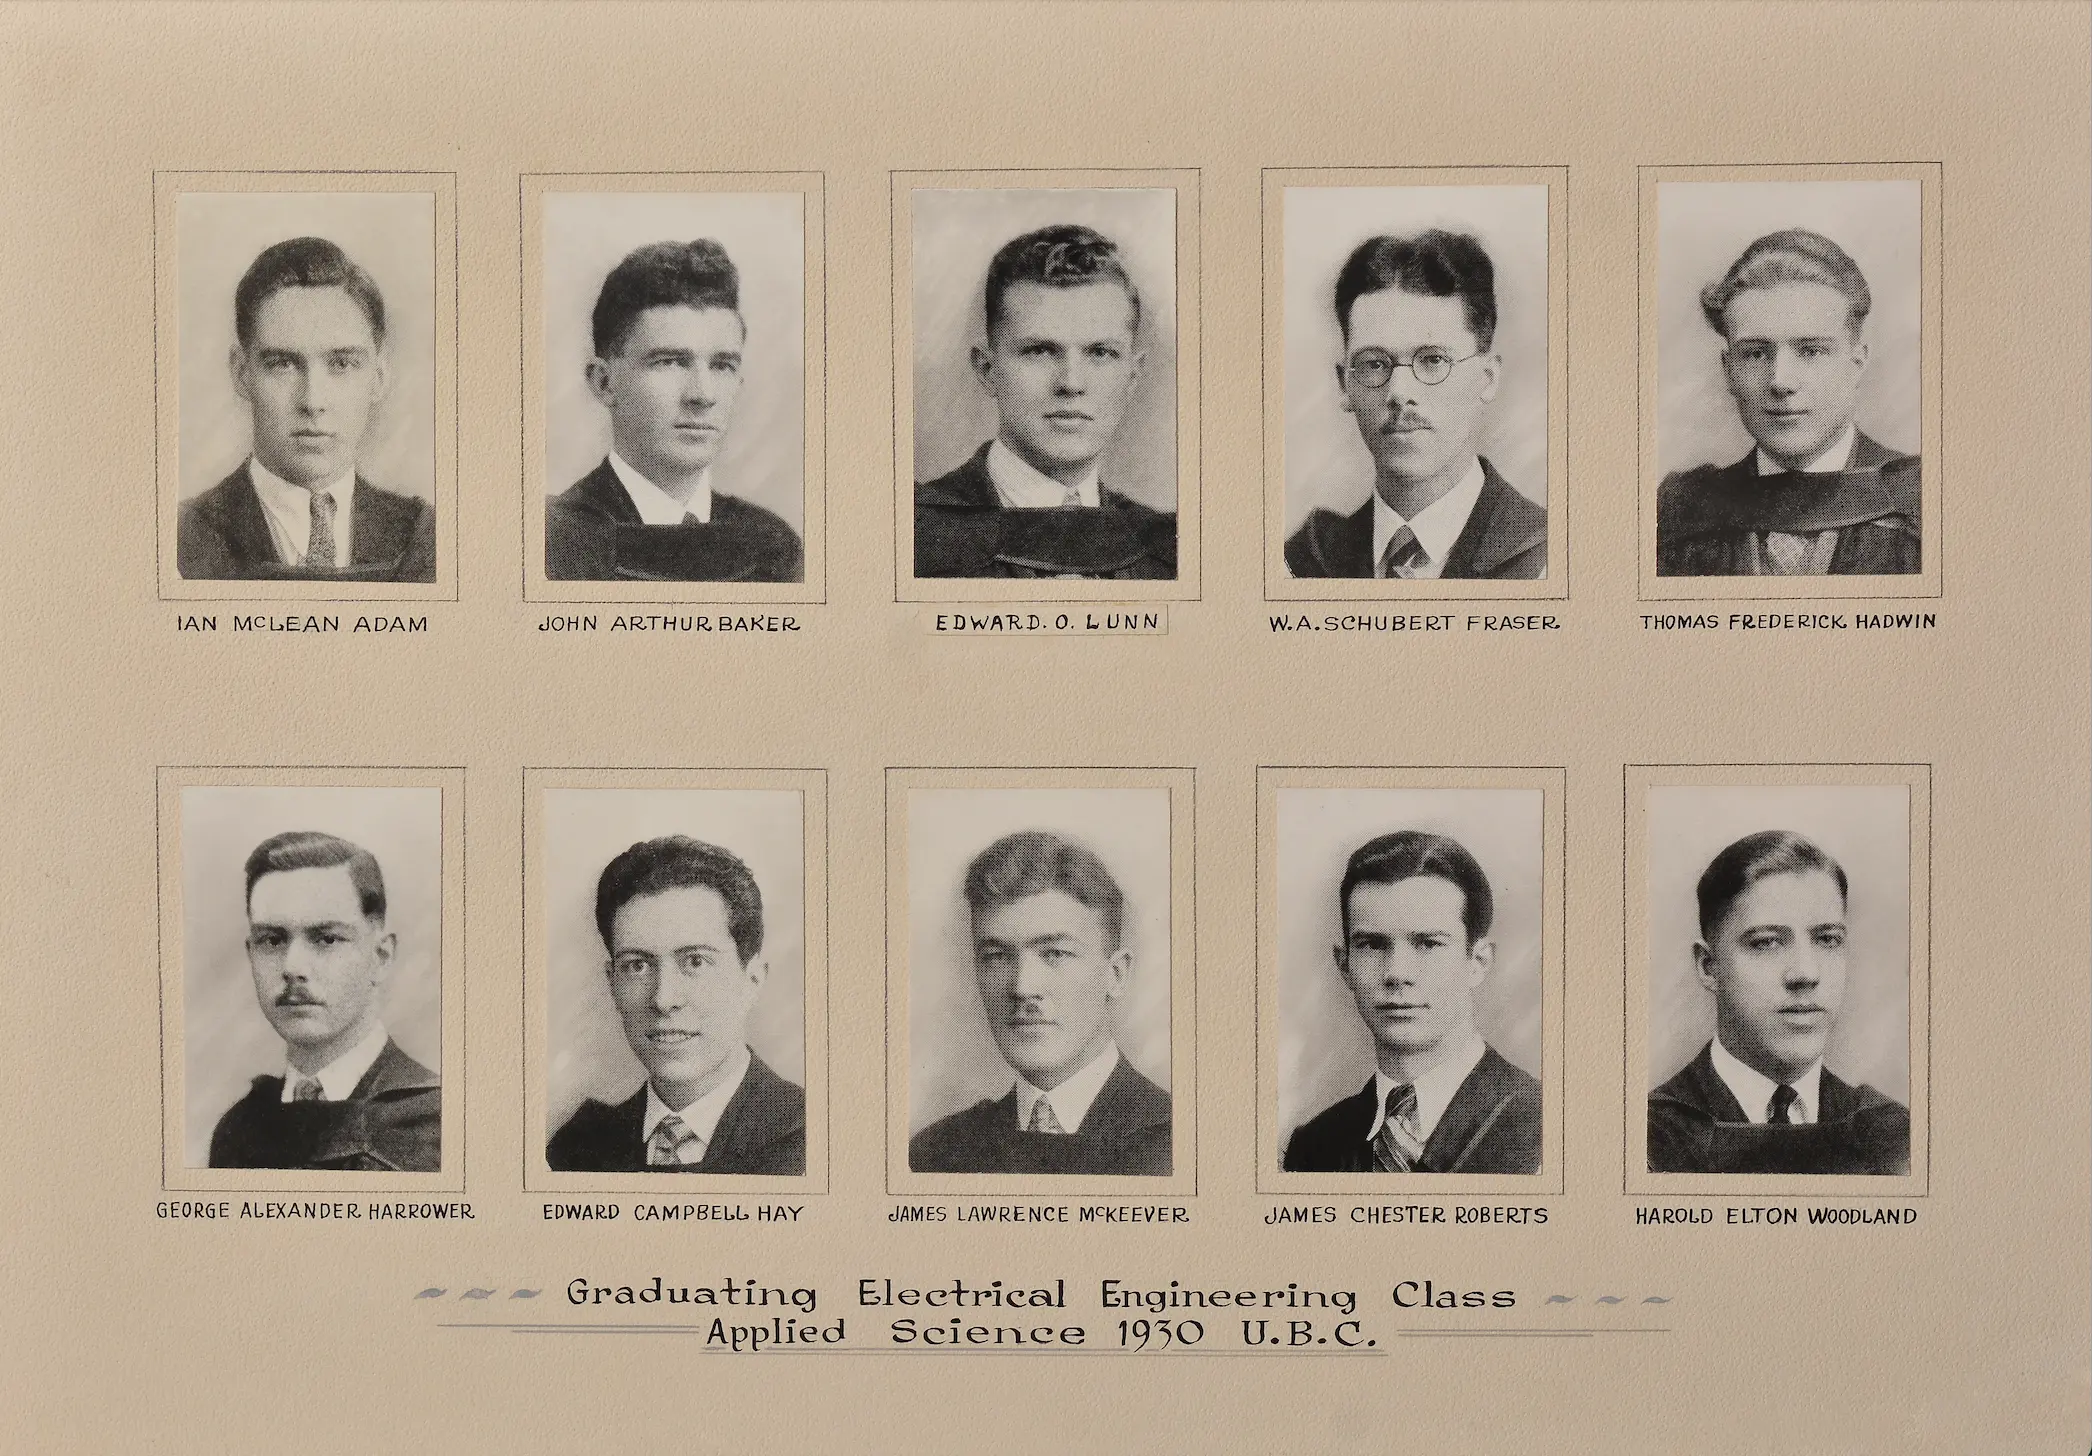 IAN McLEAN ADAM
JOHN ARTHUR BAKER
EDWARD. O. LUNN
W.A. SCHUBERT FRASER
THOMAS FREDERICK HADWIN
GEORGE ALEXANDER HARROWER
EDWARD CAMPBELL HAY
JAMES LAWRENCE McKEEVER
JAMES CHESTER ROBERTS
HAROLD ELTON WOODLAND
Graduating Electrical Engineering Class
Applied Science 1930 U.B.C.